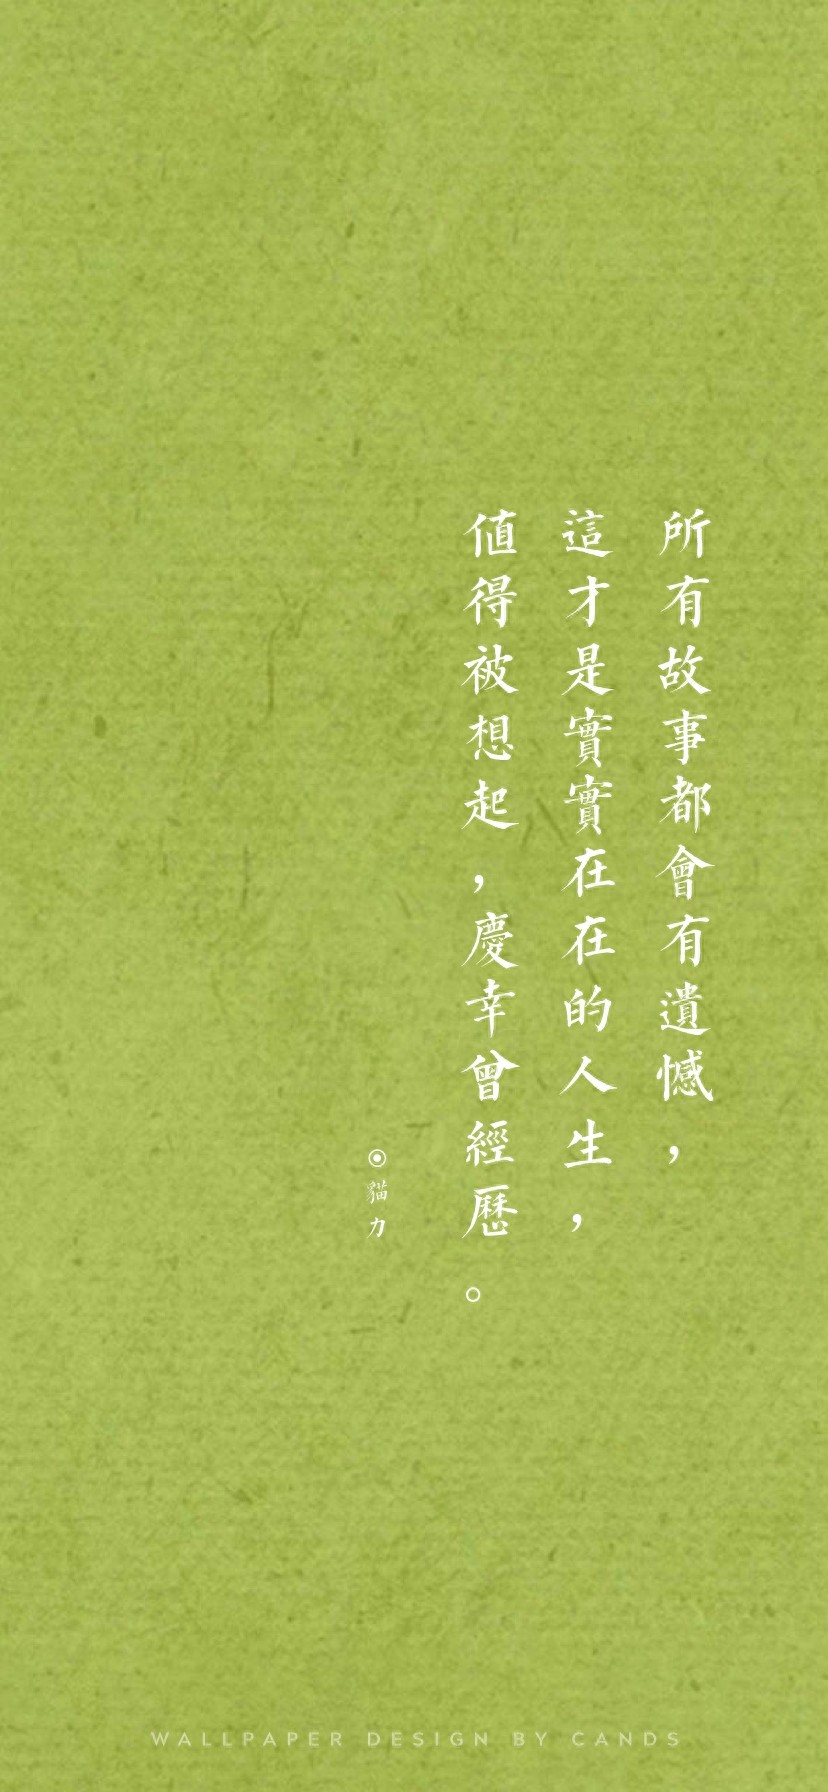 所有故事都會有遺憾，
這才是實實在在的人生，
值得被想起，慶幸曾經歷。
◉貓力
WALLPAPER DESIGN BY CANDS